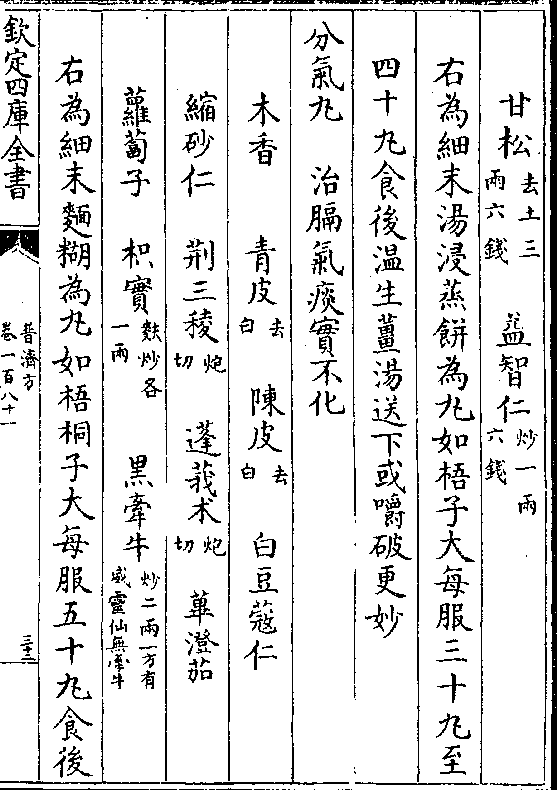 甘松去土三兩六錢 益智仁炒一兩六錢
右為細末湯浸蒸餅為丸如梧子大每服三十丸至
四十丸食後溫生薑湯送下或嚼破更妙
分氣丸 治膈氣痰實不化
木香 青皮去白 陳皮去白 白豆蔻仁
縮砂仁 荆三稜炮切 蓬莪朮炮切 蓽澄茄
蘿蔔子 枳實麩炒各一兩 黑牽牛炒二兩一方有威靈仙無牽牛
右為細末麵糊為丸如梧桐子大每服五十丸食後
欽定四庫全書
普濟方
卷一百八十一
三十三